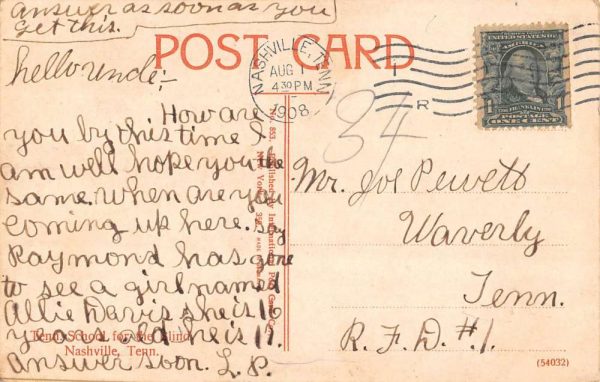 answer as soon as you
get this.
POST CARD
NASHVILLE, TENN.
AUG 1
430 PM
1908
1
R
UNITED STATES OF
AMERICA
FRANKLIN
POSTAGE
ONE CENT
34
hello Uncle;-
How are
you by this time I
am well hope you the
same. when are you
coming up here. say
Raymond has gone
to see a girl named
Allie Davis she is 16
years old he is 17.
answer soon. L.P.
Mr. Joe Pewett
Waverly
Tenn.
R.F.D. #1.
No. 853. Published by International Post Card Co.,
New York.
Tenn. School for the Blind,
Nashville, Tenn.
(54032)